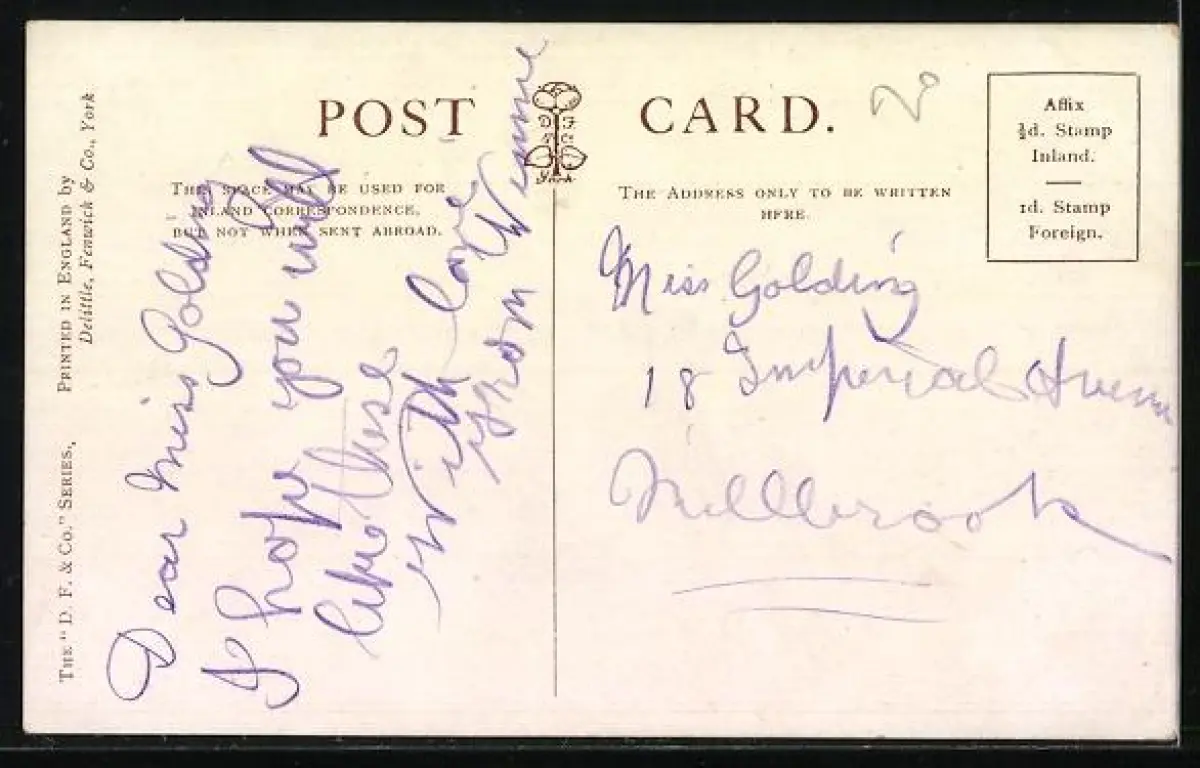 POST CARD.
THE "D. F. & Co." SERIES,
PRINTED IN ENGLAND by
Delittle, Fenwick & Co., York
THIS SPACE MAY BE USED FOR
INLAND CORRESPONDENCE,
BUT NOT WHEN SENT ABROAD.
D F
& C
York
THE ADDRESS ONLY TO BE WRITTEN
HERE.
Affix
½d. Stamp
Inland.
1d. Stamp
Foreign.
20
Dear Miss Golding
I hope you will
like these
With love
from Winnie
Miss Golding
18 Imperial Avenue
Millbrook